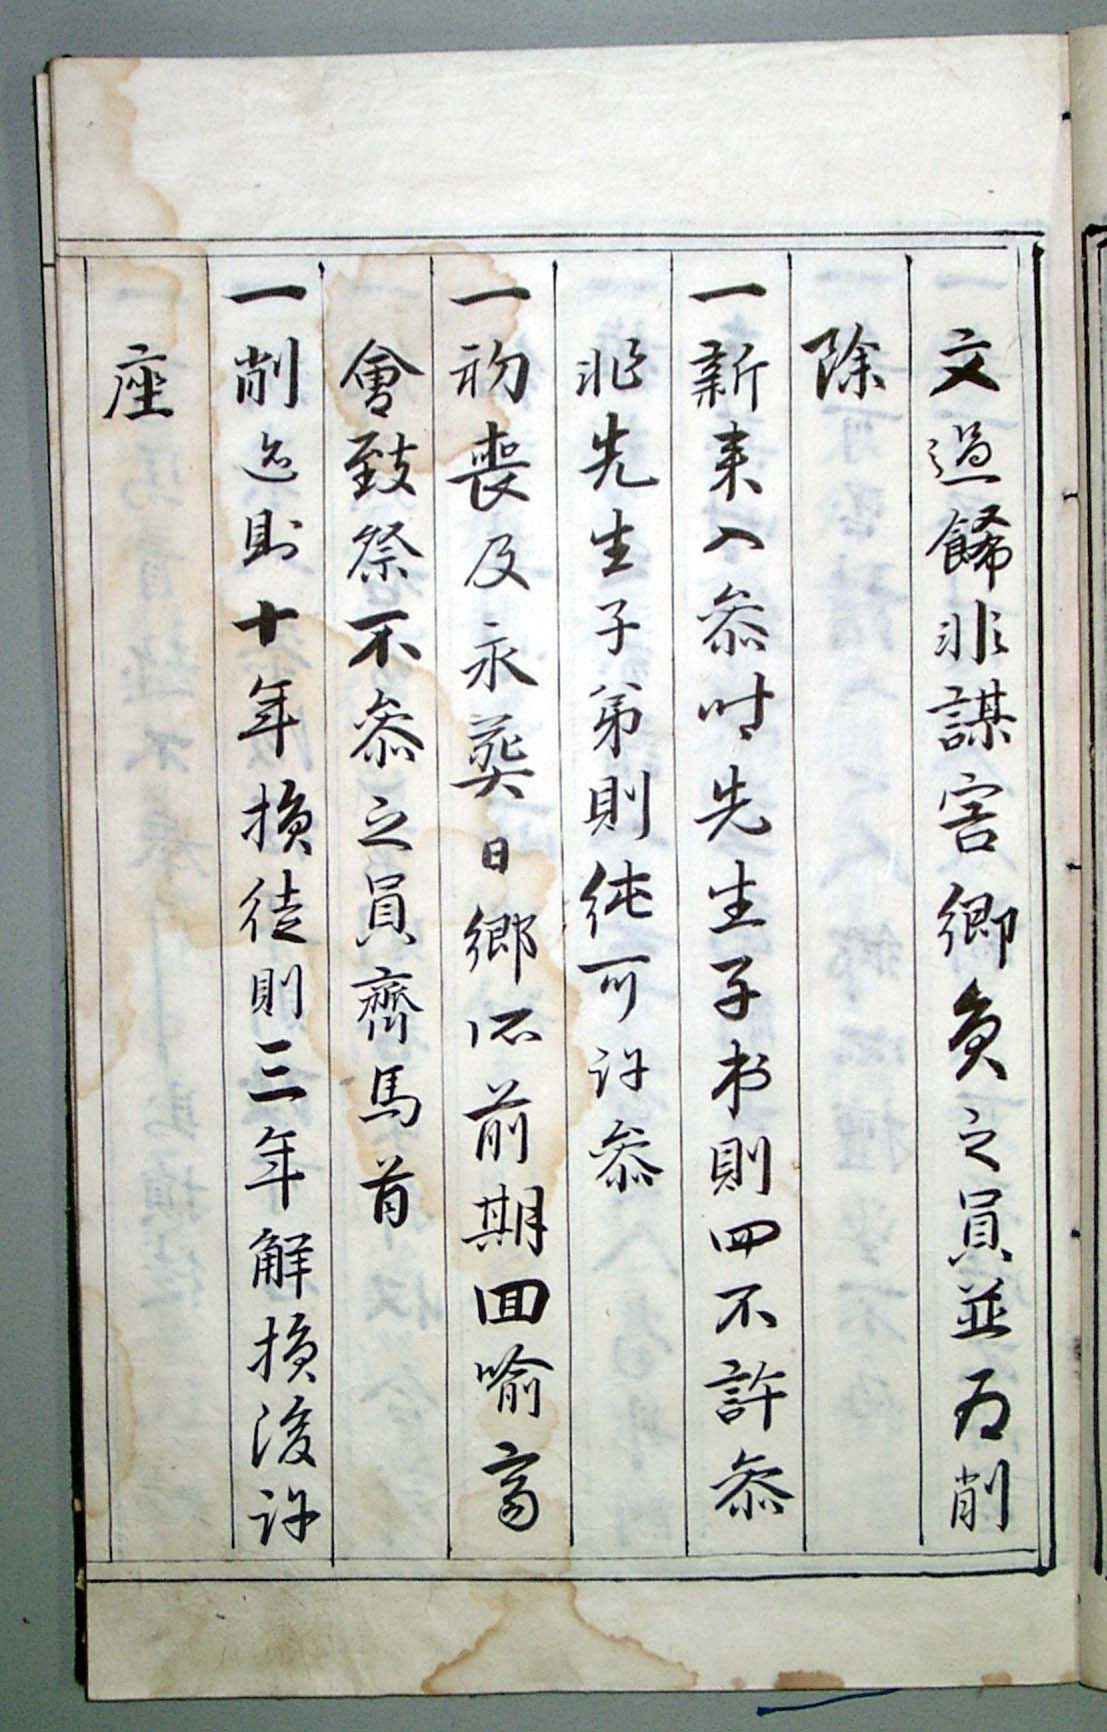 文過餙非謀害鄉負之員並為削
除
一新来入叅时先生子弟則四不許叅
非先生子弟則純可許叅
一初喪及永葬日鄉所前期回喻齊
會致祭不叅之員齊馬首
一削迹則十年損徒則三年解損後許
座